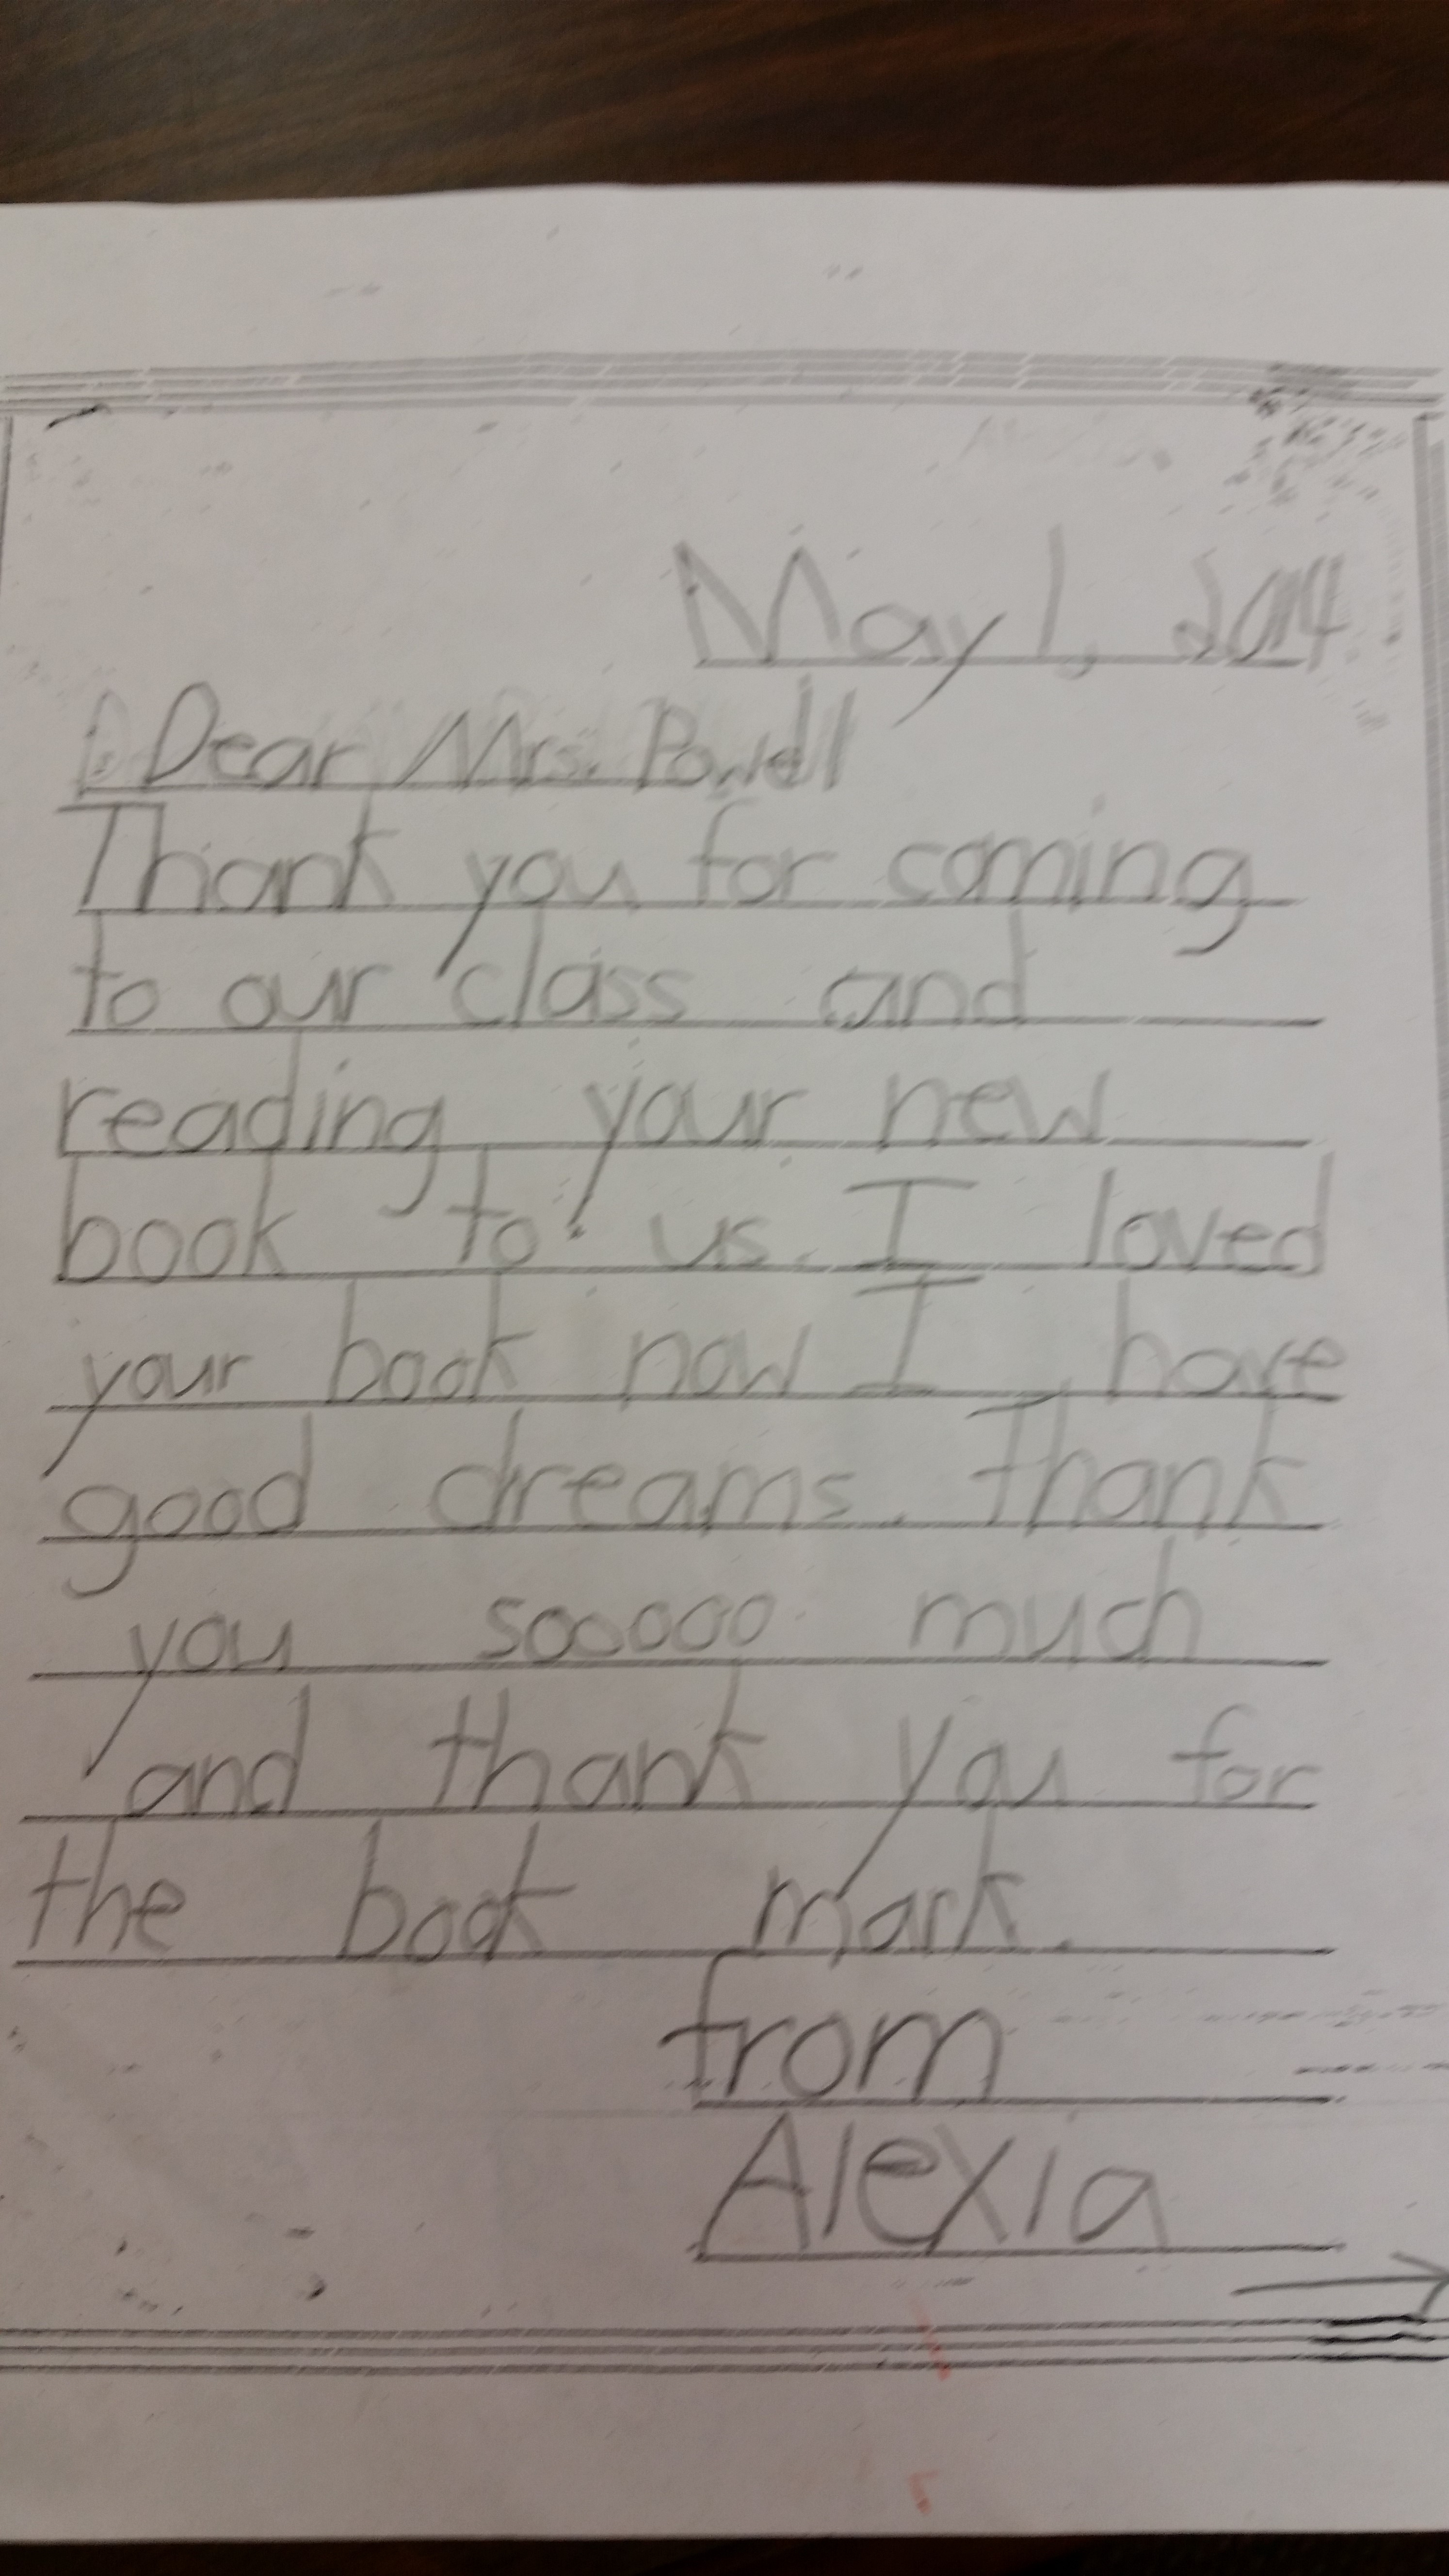 May 1, 2014
Dear Mrs. Powell
Thank you for coming
to our class and
reading your new
book to us. I loved
your book now I have
good dreams. Thank
you sooooo much
and thank you for
the book mark.
from
Alexia